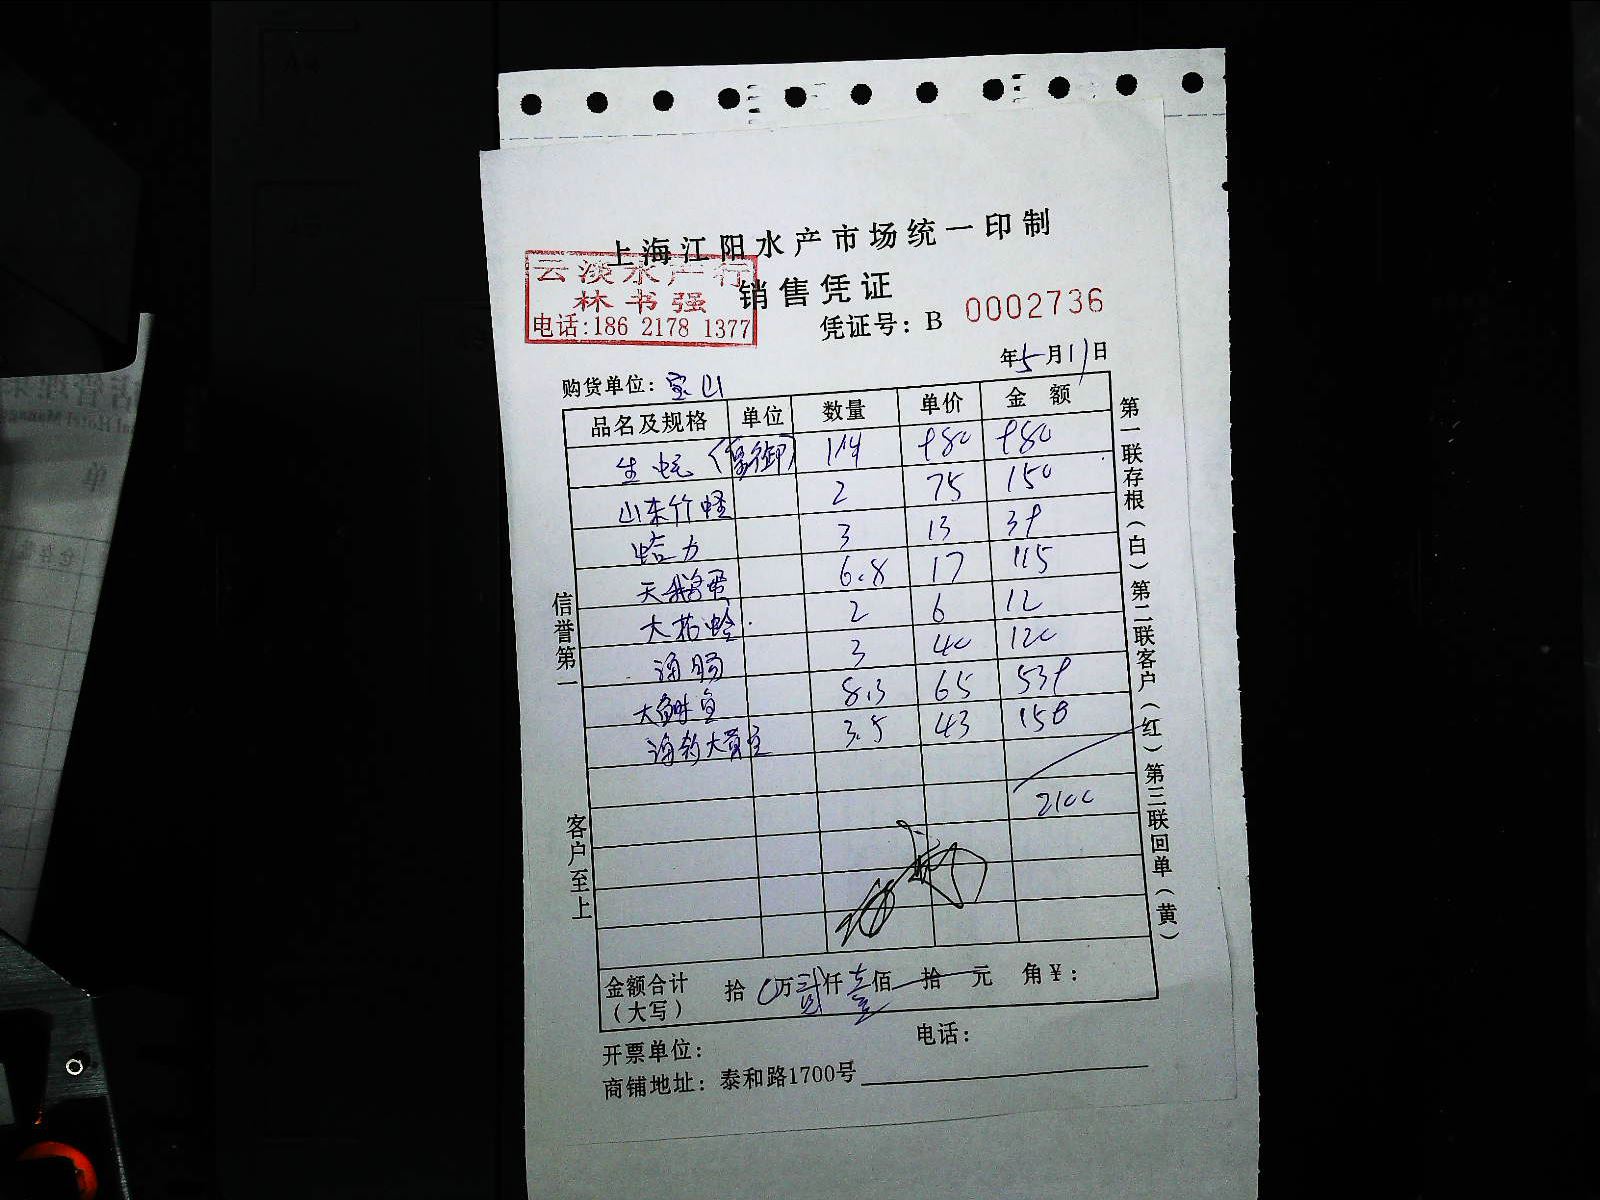 上海江阳水产市场统一印制
云淡水产行
林书强
电话:186 2178 1377
销售凭证
凭证号: B 0002736
年5月11日
购货单位: 宝山
品名及规格 单位 数量 单价 金额
生蚝 980 980
山东竹蛏 2 75 150
蛤力 3 13 39
天鹅蛋 6.8 17 115
大花蛤 2 6 12
海肠 3 40 120
大 鱼 8.3 65 539
海钓大黄鱼 3.5 43 150
2100
信誉第一
客户至上
第一联存根(白)第二联客户(红)第三联回单(黄)
金额合计(大写) 拾 0万贰仟壹佰 拾 元 角¥:
开票单位: 电话:
商铺地址: 泰和路1700号